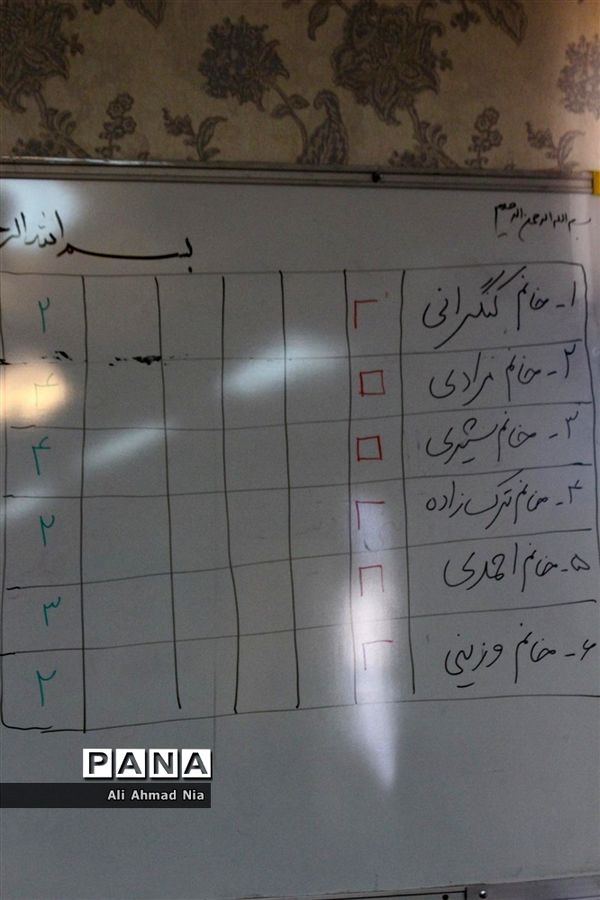 بسم الله الرحمن الرحیم
بسم الله الر
۱- خانم کنگرانی ۲
۲- خانم مرادی ۴
۳- خانم بشیری ۴
۴- خانم ترک زاده ۲
۵- خانم احمدی ۳
۶- خانم وزینی ۲
PANA
Ali Ahmad Nia